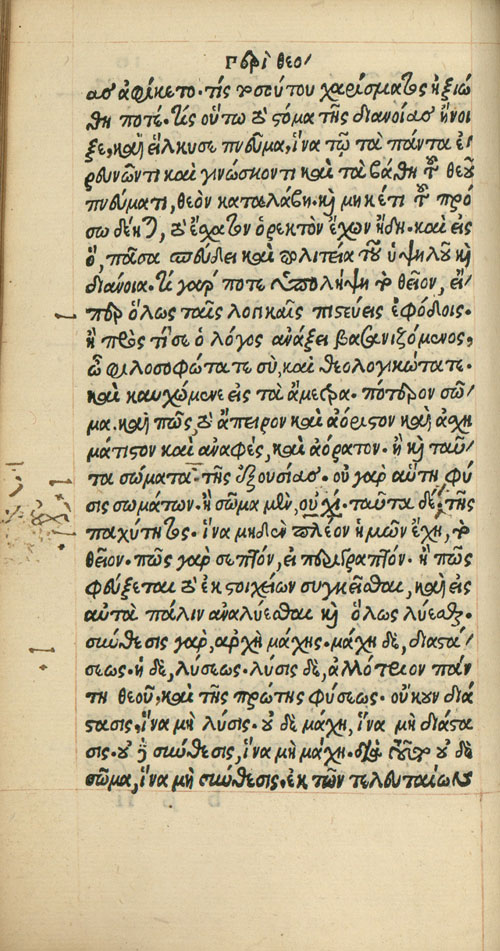 Γρηγορὶ θεο
ας ἀφίκετο· τίς τοσούτου χαρίσματος ἠξιώ
θη ποτέ· τίς οὕτω τὸ στόμα τῆς διανοίας ἤνοι
ξε, καὶ εἵλκυσε πνεῦμα, ἵνα τῷ τὰ πάντα ἐ
ρευνῶντι καὶ γινώσκοντι καὶ τὰ βάθη τοῦ θεοῦ
πνεύματι, θεὸν καταλάβῃ· κὴ μηκέτι τοῦ πρό
σω δέηται, τὸ ἔσχατον ὀρεκτὸν ἔχων ἤδη· καὶ εἰς
ὃ, πᾶσα σπεύδει καὶ πολιτεία τοῦ ὑψηλοῦ κὴ
διάνοια· τί γάρ ποτε ὑπολήψῃ τὸ θεῖον, εἴ
περ ὅλως ταῖς λογικαῖς πιστεύεις ἐφόδοις·
ἢ πρὸς τί σε ὁ λόγος ἀνάξει βασανιζόμενος,
ὦ φιλοσοφώτατε σὺ, καὶ θεολογικώτατε·
καὶ καυχώμενε εἰς τὰ ἄμετρα· πότερον σῶ
μα· καὶ πῶς, τὸ ἄπειρον καὶ ἀόριστον καὶ ἀσχη
μάτιστον καὶ ἀναφές, καὶ ἀόρατον· ἢ κὴ ταῦ
τα σώματα· τῆς ἐξουσίας· οὐ γὰρ αὕτη φύ
σις σωμάτων· ἢ σῶμα μὲν, οὐχὶ ταῦτα δέ, τῆς
παχύτητος· ἵνα μηδὲν πλέον ἡμῶν ἔχῃ, τὸ
θεῖον· πῶς γὰρ σεπτόν, εἰ περιγραπτόν· ἢ πῶς
φεύξεται τὸ ἐκ στοιχείων συγκεῖσθαι, καὶ εἰς
αὐτὰ πάλιν ἀναλύεσθαι κὴ ὅλως λύεσθαι·
σύνθεσις γὰρ, ἀρχὴ μάχης· μάχη δὲ, διαστά
σεως· ἡ δὲ, λύσεως· λύσις δὲ, ἀλλότριον πάν
τη θεοῦ, καὶ τῆς πρώτης φύσεως· οὔκουν διά
στασις, ἵνα μὴ λύσις· οὐ δὲ μάχη, ἵνα μὴ διάστα
σις· οὐ δὲ σύνθεσις, ἵνα μὴ μάχη· διὰ τοῦτο οὐ δὲ
σῶμα, ἵνα μὴ σύνθεσις· ἐκ τῶν τελευταίων